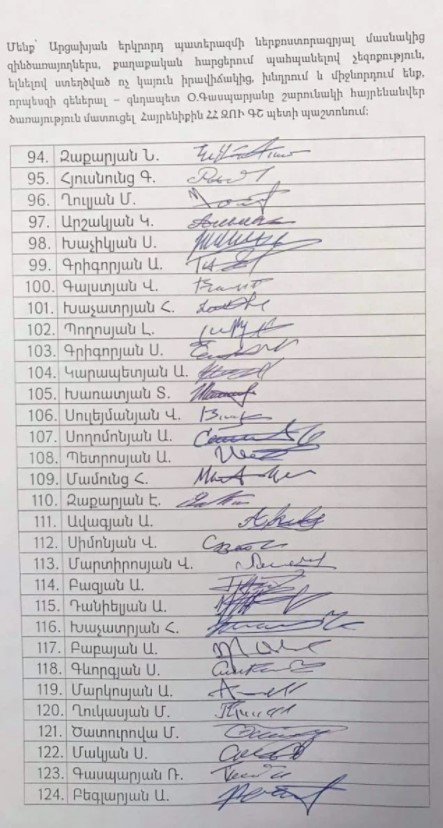 Մենք՝ Արցախյան երկրորդ պատերազմի ներքոստորագրյալ մասնակից
զինծառայողներս, քաղաքական հարցերում պահպանելով չեզոքություն,
ելնելով ստեղծված ոչ կայուն իրավիճակից, խնդրում և միջնորդում ենք,
որպեսզի գեներալ – գնդապետ Օ.Գասպարյանը շարունակի հայրենանվեր
ծառայություն մատուցել Հայրենիքին ՀՀ ԶՈՒ ԳՇ պետի պաշտոնում:
94. Զաքարյան Ն.
95. Հյունունց Գ.
96. Ղուլյան Մ.
97. Արշակյան Կ.
98. Խաչիկյան Ս.
99. Գրիգորյան Ա.
100. Գալստյան Վ.
101. Խաչատրյան Հ.
102. Պողոսյան Լ.
103. Գրիգորյան Ս.
104. Կարապետյան Ա.
105. Խառատյան Տ.
106. Սուլեյմանյան Վ.
107. Սողոմոնյան Ա.
108. Պետրոսյան Ա.
109. Մամունց Հ.
110. Զաքարյան Է.
111. Ավագյան Ա.
112. Սիմոնյան Վ.
113. Մարտիրոսյան Վ.
114. Բազյան Ա.
115. Դանիելյան Ա.
116. Խաչատրյան Հ.
117. Բաբայան Ա.
118. Գևորգյան Ս.
119. Մարկոսյան Ա.
120. Ղուկասյան Մ.
121. Ծատուրովա Մ.
122. Մակյան Ս.
123. Գասպարյան Ռ.
124. Բեգլարյան Ա.